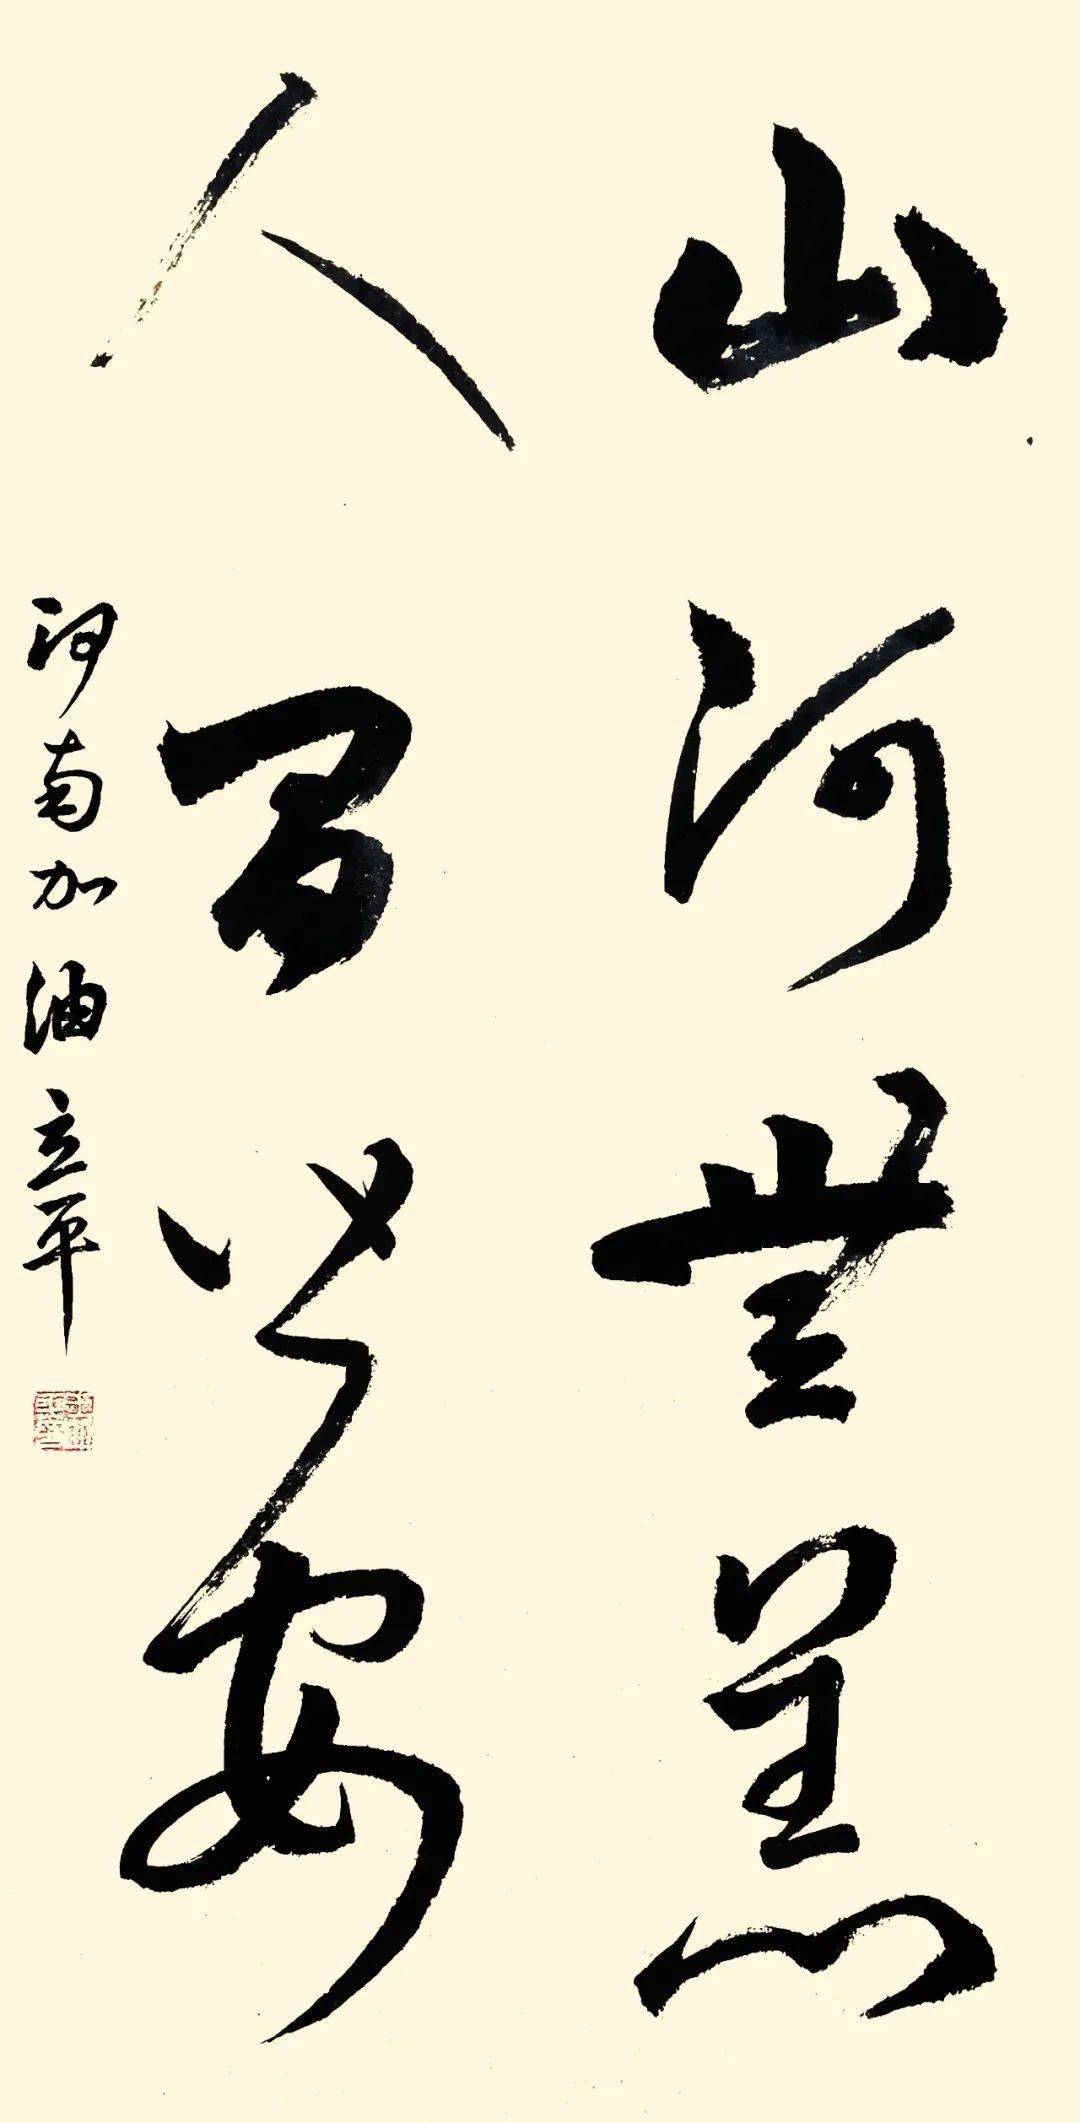 山河無恙
人間皆安
河南加油 立平